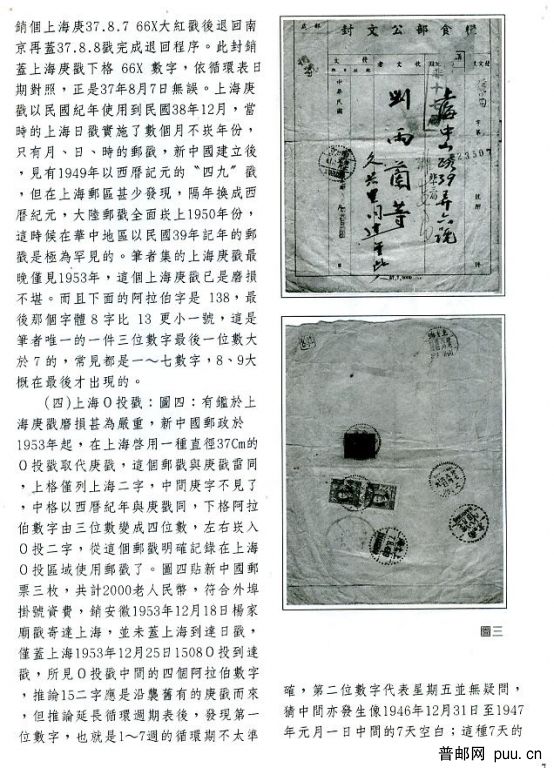 銷個上海庚37.8.7 66X大紅戳後退回南
京再蓋37.8.8戳完成退回程序。此封銷
蓋上海庚戳下格 66X 數字，依循環表日
期對照，正是37年8月7日無誤。上海庚
戳以民國紀年使用到民國38年12月，當
時的上海日戳實施了數個月不崁年份，
只有月、日、時的郵戳，新中國建立後
，見有1949年以西曆記元的〝四九〞戳
，但在上海郵區甚少發現，隔年換成西
曆紀元，大陸郵戳全面崁上1950年份，
這時候在華中地區以民國39年記年的郵
戳是極為罕見的。筆者集的上海庚戳最
晚僅見1953年，這個上海庚戳已是磨損
不堪。而且下面的阿拉伯字是 138，最
後那個字體 8 字比 13 更小一號，這是
筆者唯一的一件三位數字最後一位數大
於 7 的，常見都是一～七數字，8、9大
概在最後才出現的。
(四)上海Ｏ投戳：圖四：有鑑於上
海庚戳磨損甚為嚴重，新中國郵政於
1953年起，在上海啓用一種直徑37Cm的
Ｏ投戳取代庚戳，這個郵戳與庚戳雷同
，上格僅列上海二字，中間庚字不見了
，中格以西曆紀年與庚戳同，下格阿拉
伯數字由三位數變成四位數，左右崁入
Ｏ投二字，從這個郵戳明確記錄在上海
Ｏ投區域使用郵戳了。圖四貼新中國郵
票三枚，共計2000老人民幣，符合外埠
掛號資費，銷安徽1953年12月18日楊家
廟戳寄達上海，並未蓋上海到達日戳，
僅蓋上海1953年12月25日1508Ｏ投到達
戳，所見Ｏ投戳中間的四個阿拉伯數字
，推論15二字應是沿襲舊有的庚戳而來
，但推論延長循環週期表後，發現第一
位數字，也就是1～7週的循環期不太準
封文公部食糧
中華民國
劉雨蘭等
上海中山路39弄六號
23507
圖三
確，第二位數字代表星期五並無疑問，
猜中間亦發生像1946年12月31日至1947
年元月一日中間的7天空白；這種7天的
普邮网 puu.cn